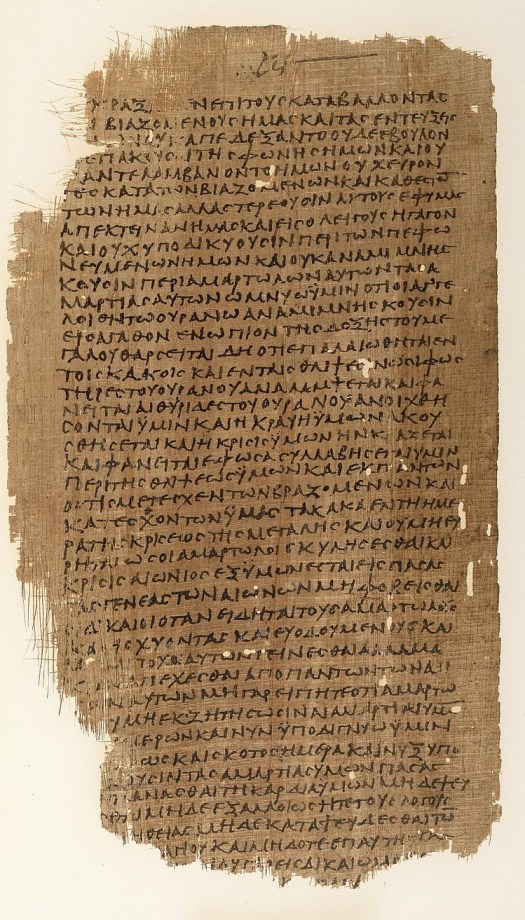 ΡΑΞ ΝΕΠΙΤΟΥΣΚΑΤΑΒΑΛΛΟΝΤΑΣ
ΒΙΑΖΟΜΕΝΟΥΣΗΜΑΣΚΑΙΤΑΣΕΝΤΕΥΞΕΙΣ
ΟΥΚΑΠΕΔΕΞΑΝΤΟΟΥΔΕΕΒΟΥΛΟΝ
ΕΠΑΚΟΥΣ ΙΤΗΣΦΩΝΗΣΗΜΩΝΚΑΙΟΥ
ΑΝΤΕΛΑΜΒΑΝΟΝΤΟΗΜΩΝΟΥΧΕΥΡΟΝ
ΤΕΣΚΑΤΑΤΩΝΒΙΑΖΟΜΕΝΩΝΚΑΙΚΑΘΕΣΤΩ
ΤΩΝΗΜΑΣΑΛΛΑΣΤΕΡΕΟΥΣΙΝΑΥΤΟΥΣΕΦΥΜΑΣ
ΑΠΕΚΤΕΙΝΑΝΗΜΑΣΚΑΙΕΙΣΟΛΕΙΓΟΥΣΗΓΑΓΟΝ
ΚΑΙΟΥΧΥΠΟΔΙΚΥΟΥΣΙΝΠΕΡΙΤΩΝΠΕΦΩ
ΝΕΥΜΕΝΩΝΗΜΩΝΚΑΙΟΥΚΑΝΑΜΙΜΝΗΣ
ΚΟΥΣΙΝΠΕΡΙΑΜΑΡΤΩΛΩΝΑΥΤΩΝΤΑΣΑ
ΜΑΡΤΙΑΣΑΥΤΩΝΟΜΝΥΩΫΜΙΝΟΤΙΟΙΑΓΓΕ
ΛΟΙΕΝΤΩΟΥΡΑΝΩΑΝΑΜΙΜΝΗΣΚΟΥΣΙΝ
ΕΙΣΑΓΑΘΟΝΕΝΩΠΙΟΝΤΗΣΔΟΞΗΣΤΟΥΜΕ
ΓΑΛΟΥΘΑΡΣΕΙΤΑΙΔΗΟΤΙΕΠΑΛΑΙΩΘΗΤΑΙΕΝ
ΤΟΙΣΚΑΚΟΙΣΚΑΙΕΝΤΑΙΣΘΛΙΨΕΣΙΝΩΣΙΦΩΣ
ΤΗΡΕΣΤΟΥΟΥΡΑΝΟΥΑΝΑΛΑΜΨΕΤΑΙΚΑΙΦΑ
ΝΕΙΤΑΙΑΙΘΥΡΙΔΕΣΤΟΥΟΥΡΑΝΟΥΑΝΟΙΧΘΗ
ΣΟΝΤΑΙΫΜΙΝΚΑΙΗΚΡΑΥΓΗΫΜΩΝΑΚΟΥ
ΣΘΗΣΕΤΑΙΚΑΙΗΚΡΙΣΙΣΫΜΩΝΗΝΚΡΑΖΕΤΑΙ
ΚΑΙΦΑΝΕΙΤΑΙΕΦΩΣΑΣΥΛΛΑΒΗΣΕΤΑΙΫΜΙΝ
ΠΕΡΙΤΗΣΘΛΙΨΕΩΣΫΜΩΝΚΑΙΕΚΠΑΝΤΩΝ
ΟΣΤΙΣΜΕΤΕΣΧΕΝΤΩΝΒΙΑΖΟΜΕΝΩΝΚΑΙ
ΚΑΤΕΣΧΟΝΤΩΝΫΜΑΣΤΑΚΑΚΑΕΝΤΗΗΜΕ
ΡΑΤΗΣΚΡΙΣΕΩΣΤΗΣΜΕΓΑΛΗΣΚΑΙΟΥΜΗΕΥ
ΡΗΤΑΙΩΣΟΙΑΜΑΡΤΩΛΟΙΣΚΥΛΗΣΕΣΘΑΙΚΑΙ
ΚΡΙΣΙΣΑΙΩΝΙΟΣΕΞΫΜΩΝΕΣΤΑΙΕΙΣΠΑΣΑΣ
ΤΑΣΓΕΝΕΑΣΤΩΝΑΙΩΝΩΝΜΗΦΟΒΕΙΣΘΑΙ
ΔΙΚΑΙΟΙΟΤΑΝΕΙΔΗΤΑΙΤΟΥΣΑΜΑΡΤΩΛΟΥΣ
ΚΑΤΙΣΧΥΟΝΤΑΣΚΑΙΕΥΟΔΟΥΜΕΝΟΥΣΚΑΙ
ΤΟΧΟΙΑΥΤΩΝΓΕΙΝΕΣΘΑΙΑΛΛΑΜΑ
ΑΠΕΧΕΣΘΑΙΑΠΟΠΑΝΤΩΝΤΩΝΑΔΙ
ΝΑΥΤΩΝΜΗΓΑΡΕΙΠΗΤΕΟΤΙΑΜΑΡΤΩ
ΥΜΗΕΚΖΗΤΗΣΩΣΙΝΑΙΑΜΑΡΤΙΑΙΥΜΩ
ΜΕΡΩΝΚΑΙΝΥΝΫΠΟΔΙΓΝΥΩΫΜΙΝ
ΩΣΚΑΙΣΚΟΤΟΣΗΜΕΡΑΚΑΙΝΥΞΥΠΟ
ΟΥΣΙΝΤΑΣΑΜΑΡΤΙΑΣΥΜΩΝΠΑΣΑΣ
ΠΛΑΝΑΣΘΑΙΤΗΚΑΡΔΙΑΥΜΩΝΜΗΔΕΨΕΥ
ΜΗΔΕΕΞΑΛΛΟΙΩΣΗΤΕΤΟΥΣΛΟΓΟΥΣ
ΗΘΕΙΑΣΜΗΔΕΚΑΤΑΨΕΥΔΕΣΘΑΙΤΩ
ΓΙΟΥΚΑΙΜΗΔΟΤΕΕΠΑΥΤΗ
ΕΙΣΔΙΚΑΙΩΜΑ